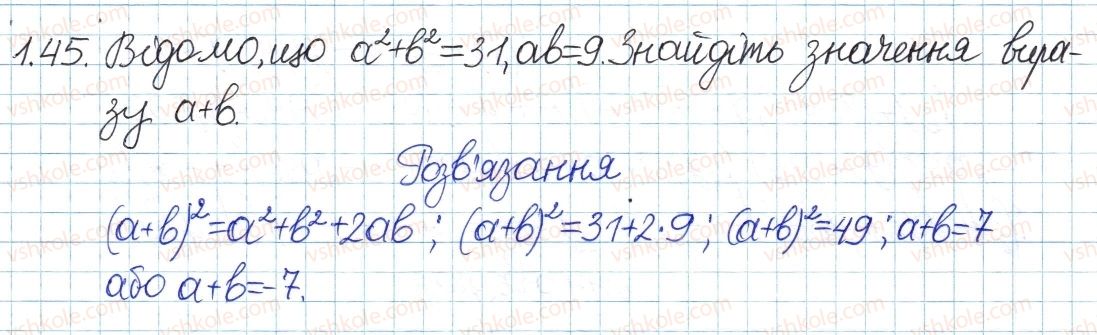 1.45. Відомо, що a²+b²=31, ab=9. Знайдіть значення вира-
зу a+b.
Розв'язання
(a+b)²=a²+b²+2ab; (a+b)²=31+2·9; (a+b)²=49; a+b=7
або a+b=-7.